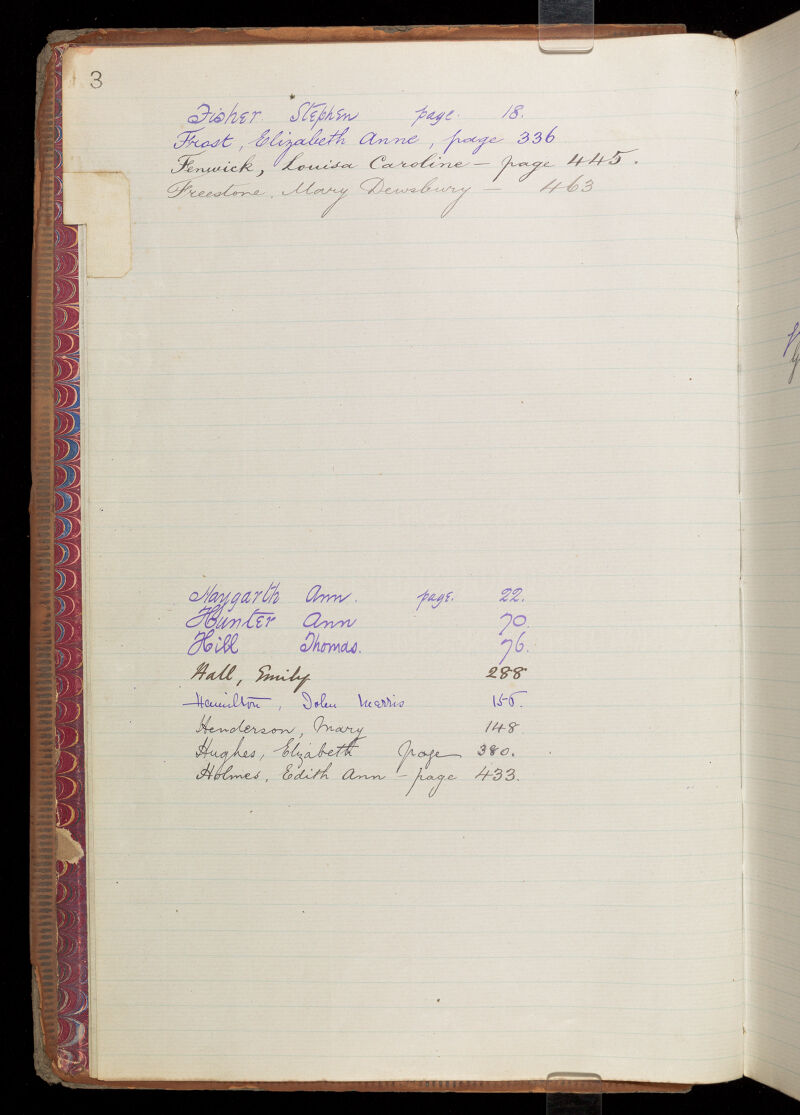 3
Fisher Stephen page. 18.
Frost, Elizabeth Anne, page 336
Fenwick, Louisa Caroline — page 445.
Freestone, Mary Dewsbury — 463
Haygarth Ann. page. 22.
Hunter Ann 70.
Hill Thomas. 76.
Hall, Emily 288
Hamilton, John Merris
Henderson, Mary 148
Hughes, Elizabeth page 380.
Holmes, Edith Ann — page 433.